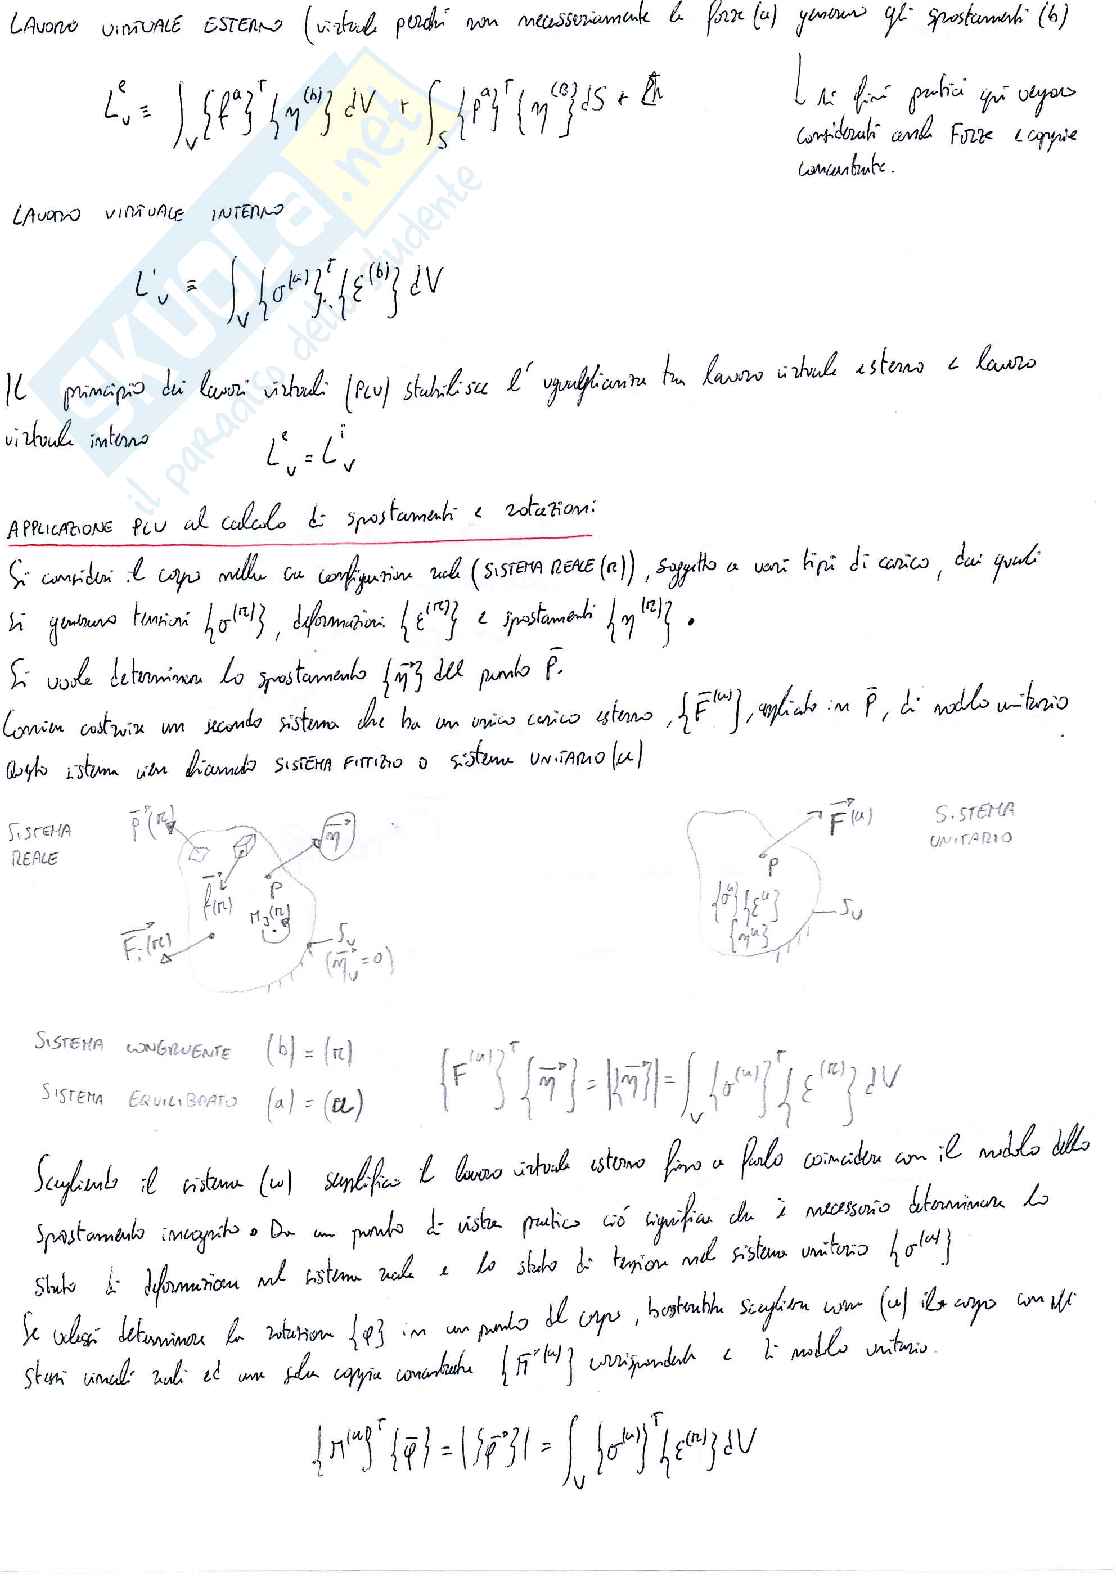 LAVORO VIRTUALE ESTERNO (virtuale perché non necessariamente le forze (a) generano gli spostamenti (b)
L^e_v ≡ ∫_V {f^a}^T {η^(b)} dV + ∫_S {p^a}^T {η^(b)} dS +
ai fini pratici qui vengono
considerati anche Forze e coppie
concentrate.
LAVORO VIRTUALE INTERNO
L^i_v ≡ ∫_V {σ^(a)}^T {ε^(b)} dV
Il principio dei lavori virtuali (PLV) stabilisce l'uguaglianza tra lavoro virtuale esterno e lavoro
virtuale interno L^e_v = L^i_v
APPLICAZIONE PLV al calcolo di spostamenti e rotazioni:
Si consideri il corpo nella sua configurazione reale (SISTEMA REALE (r)), soggetto a vari tipi di carico, dai quali
si generano tensioni {σ^(r)}, deformazioni {ε^(r)} e spostamenti {η^(r)}.
Si vuole determinare lo spostamento {η̄} del punto P̄.
Conviene costruire un secondo sistema che ha un unico carico esterno, {F̄^(u)}, applicato in P̄, di modulo unitario
Questo sistema vien chiamato SISTEMA FITTIZIO o sistema UNITARIO (u)
SISTEMA
REALE
p⃗(r)
η⃗
f⃗(r)
P
M_j(r)
F⃗_i(r)
S_u
(η⃗_u=0)
F⃗(u)
P
{σ^u} {ε^u}
{η^u}
S_u
SISTEMA
UNITARIO
SISTEMA CONGRUENTE (b) = (r)
SISTEMA EQUILIBRATO (a) = (u)
{F^(u)}^T {η̄} = |{η̄}| = ∫_V {σ^(u)}^T {ε^(r)} dV
Scegliendo il sistema (u) semplifica il lavoro virtuale esterno fino a farlo coincidere con il modulo dello
spostamento incognito. Da un punto di vista pratico ciò significa che è necessario determinare lo
stato di deformazione nel sistema reale e lo stato di tensione nel sistema unitario {σ^(u)}
Se volessi determinare la rotazione {φ} in un punto del corpo, basterebbe scegliere come (u) il corpo con gli
stessi vincoli reali ed una sola coppia concentrata {M̄^(u)} corrispondente e di modulo unitario.
{M^(u)}^T {φ̄} = |{φ̄}| = ∫_V {σ^(u)}^T {ε^(r)} dV
SKUOLA.net
il paradiso dello studente